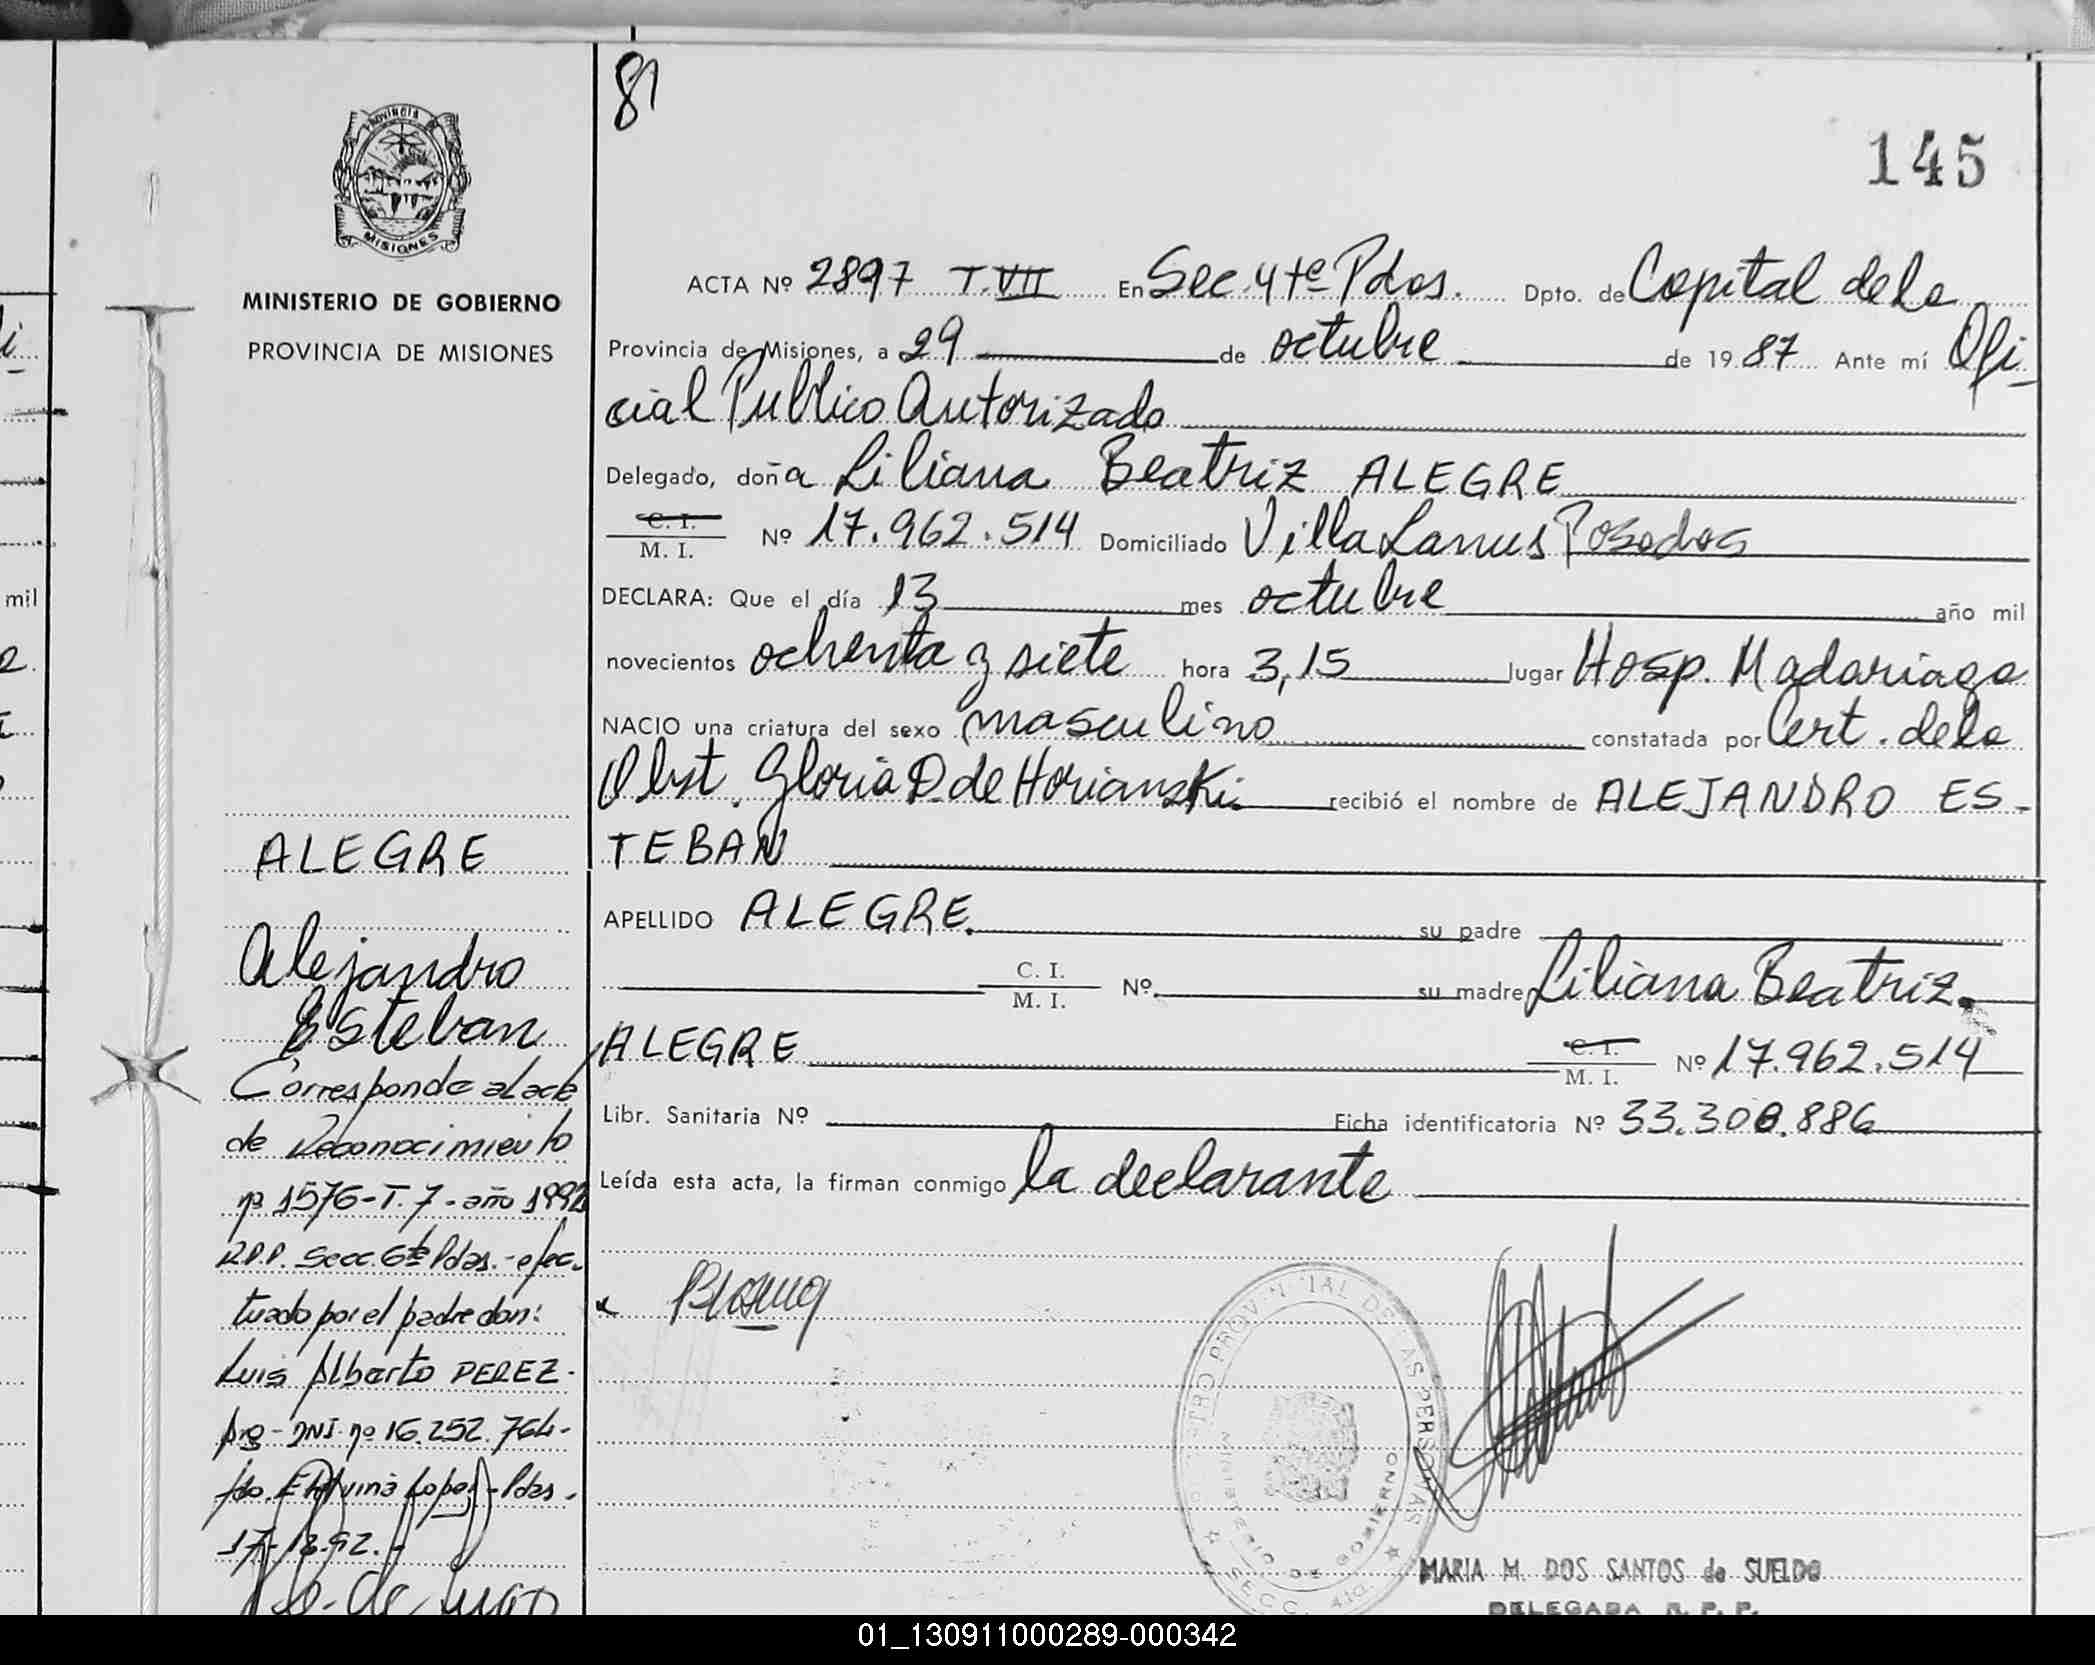 81
145
PROVINCIA DE
MISIONES
MINISTERIO DE GOBIERNO
PROVINCIA DE MISIONES
ACTA Nº 2897 T.VII En Sec. 4ta Pdas. Dpto. de Capital de la
Provincia de Misiones, a 29 de octubre de 1987 Ante mí Ofi-
cial Publico Autorizado
Delegado, doña Liliana Beatriz ALEGRE
C. I.
M. I. Nº 17.962.514 Domiciliado Villa Lanus Posadas
DECLARA: Que el día 13 mes octubre año mil
novecientos ochenta y siete hora 3,15 lugar Hosp. Madariaga
NACIO una criatura del sexo masculino constatada por Cert. de la
Obst. Gloria D. de Horianski recibió el nombre de ALEJANDRO ES-
TEBAN
APELLIDO ALEGRE. su padre
C. I.
M. I. Nº su madre Liliana Beatriz
ALEGRE C. I.
M. I. Nº 17.962.514
Libr. Sanitaria Nº Ficha identificatoria Nº 33.300.886
Leída esta acta, la firman conmigo la declarante
ALEGRE
Alejandro
Esteban
Corresponde al acta
de Reconocimiento
nº 1576-T.7-año 1992
R.P.P. Secc. 6ta Pdas.-efec-
tuado por el padre don:
Luis Alberto PEREZ-
Arg-DNI nº 16.252.764-
fdo. Lopez-Pdas.
REGISTRO PROVINCIAL DE LAS PERSONAS
MINISTERIO DE GOBIERNO
SECC. 4ta.
MARIA M. DOS SANTOS de SUELDO
DELEGADA R. P. P.
mil
01_130911000289-000342